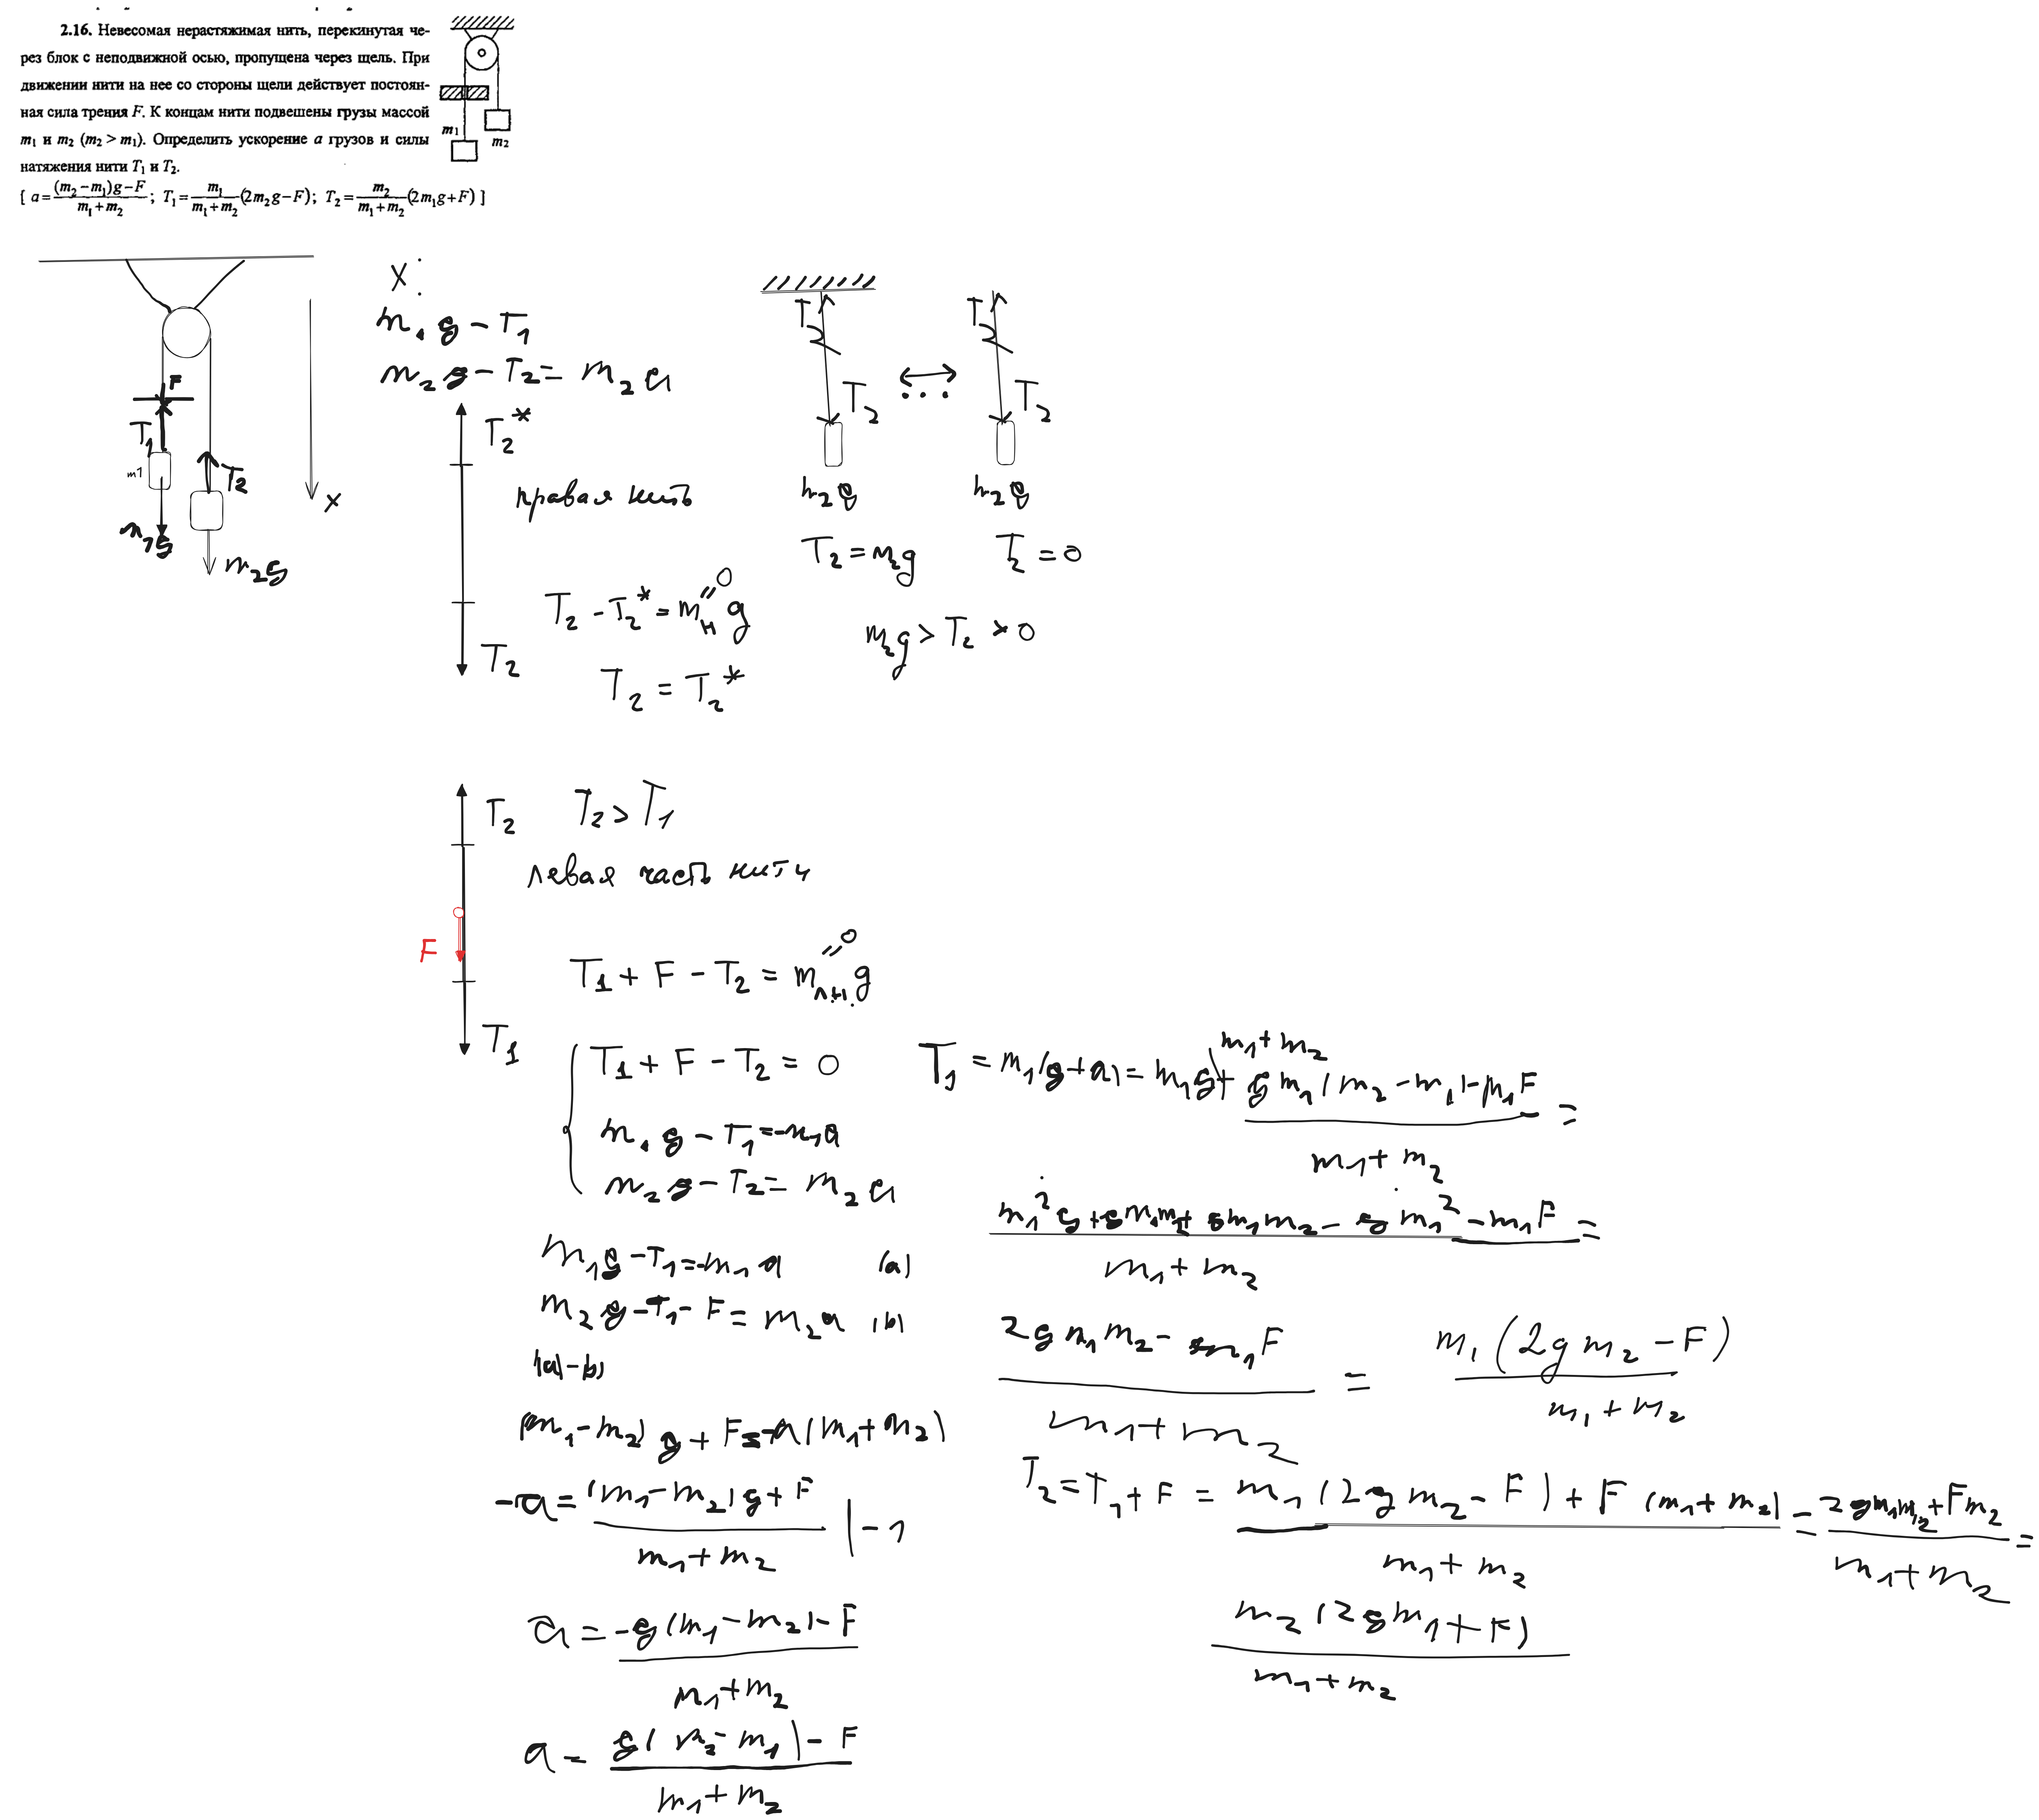 2.16. Невесомая нерастяжимая нить, перекинутая че-
рез блок с неподвижной осью, пропущена через щель. При
движении нити на нее со стороны щели действует постоян-
ная сила трения F. К концам нити подвешены грузы массой
m₁ и m₂ (m₂ > m₁). Определить ускорение a грузов и силы
натяжения нити T₁ и T₂.
[ a = ((m₂ − m₁)g − F)/(m₁ + m₂); T₁ = m₁/(m₁ + m₂) (2m₂g − F); T₂ = m₂/(m₁ + m₂) (2m₁g + F) ]
m₁
m₂
F
T₁
m1
m₁g
T₂
m₂g
x
X:
m₁g − T₁
m₂g − T₂ = m₂a
T₂*
правая нить
T₂ − T₂* = mₙg
" 0
T₂
T₂ = T₂*
T₂
T₂
m₂g
T₂ = m₂g
...
T₂
T₂
m₂g
T₂ = 0
m₂g > T₂ > 0
T₂
T₂ > T₁
левая часть нити
F
T₁ + F − T₂ = mл.н.g
" 0
T₁
T₁ + F − T₂ = 0
m₁g − T₁ = −m₁a
m₂g − T₂ = m₂a
m₁g − T₁ = −m₁a (a)
m₂g − T₁ − F = m₂a (b)
(a) − b)
(m₁ − m₂)g + F = −a(m₁ + m₂)
−a = ((m₁ − m₂)g + F)/(m₁ + m₂) | −1
a = (−g(m₁ − m₂) − F)/(m₁ + m₂)
a = (g(m₂ − m₁) − F)/(m₁ + m₂)
m₁ + m₂
T₁ = m₁(g + a) = m₁g + (gm₁(m₂ − m₁) − m₁F)/(m₁ + m₂) =
(m₁²g + gm₁m₂ + gm₁m₂ − gm₁² − m₁F)/(m₁ + m₂) =
(2gm₁m₂ − m₁F)/(m₁ + m₂) = m₁(2gm₂ − F)/(m₁ + m₂)
T₂ = T₁ + F = (m₁(2gm₂ − F) + F(m₁ + m₂))/(m₁ + m₂) = (2gm₁m₂ + Fm₂)/(m₁ + m₂) =
m₂(2gm₁ + F)/(m₁ + m₂)